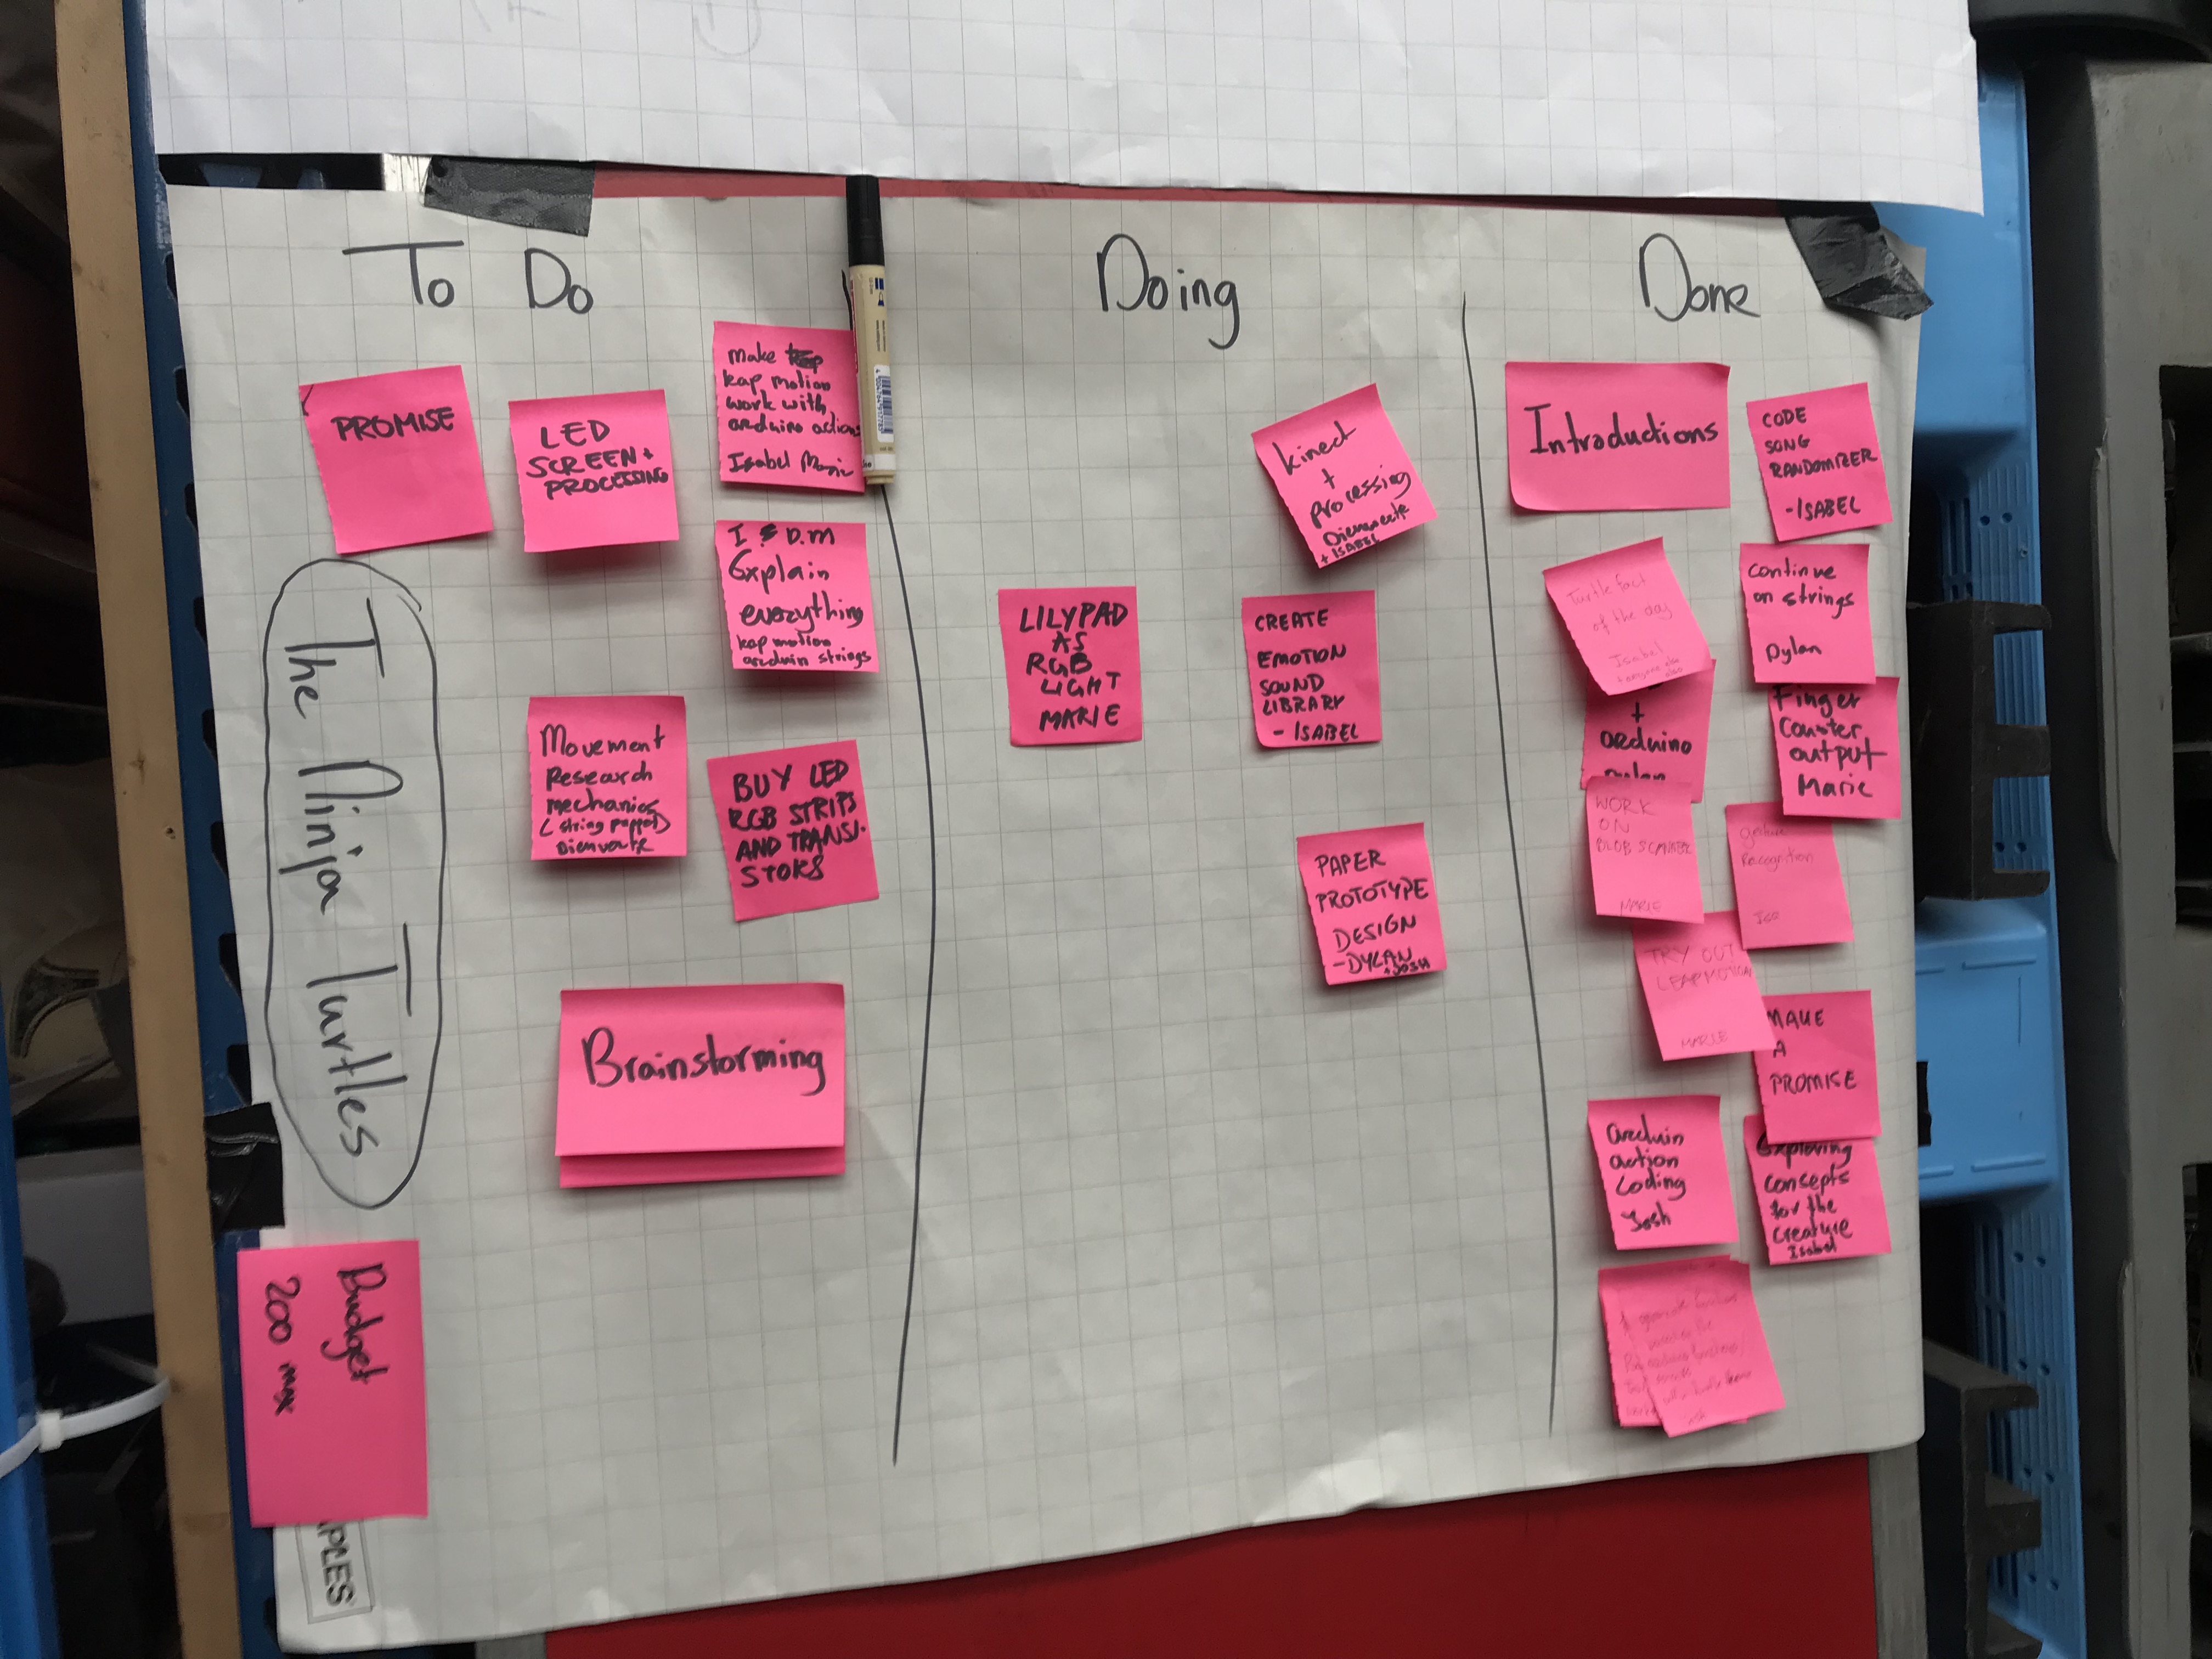 To Do
Doing
Done
PROMISE
LED
SCREEN +
PROCESSING
make
leap motion
work with
arduino actions
Isabel Marie
I & D.M
Explain
everything
leap motion
arduin strings
Movement
Research
mechanics
(string puppet)
Dieuwertje
BUY LED
RGB STRIPS
AND TRANSI.
STORS
Brainstorming
The Ninja Turtles
Budget
200 max
kinect
+
processing
+ ISABEL
LILYPAD
AS
RGB
LIGHT
MARIE
CREATE
EMOTION
SOUND
LIBRARY
- ISABEL
PAPER
PROTOTYPE
DESIGN
- DYLAN
+ JOSH
Introductions
CODE
SONG
RANDOMIZER
- ISABEL
Turtle fact
of the day
Isabel
continue
on strings
Dylan
+
arduino
Dylan
Finger
Counter
output
Marie
WORK
ON
BLOB SCANNER
MARIE
Gesture
Recognition
Isa
TRY OUT
LEAPMOTION
MARIE
MAKE
A
PROMISE
arduin
action
Coding
Josh
Exploring
consepts
for the
Creature
Isabel